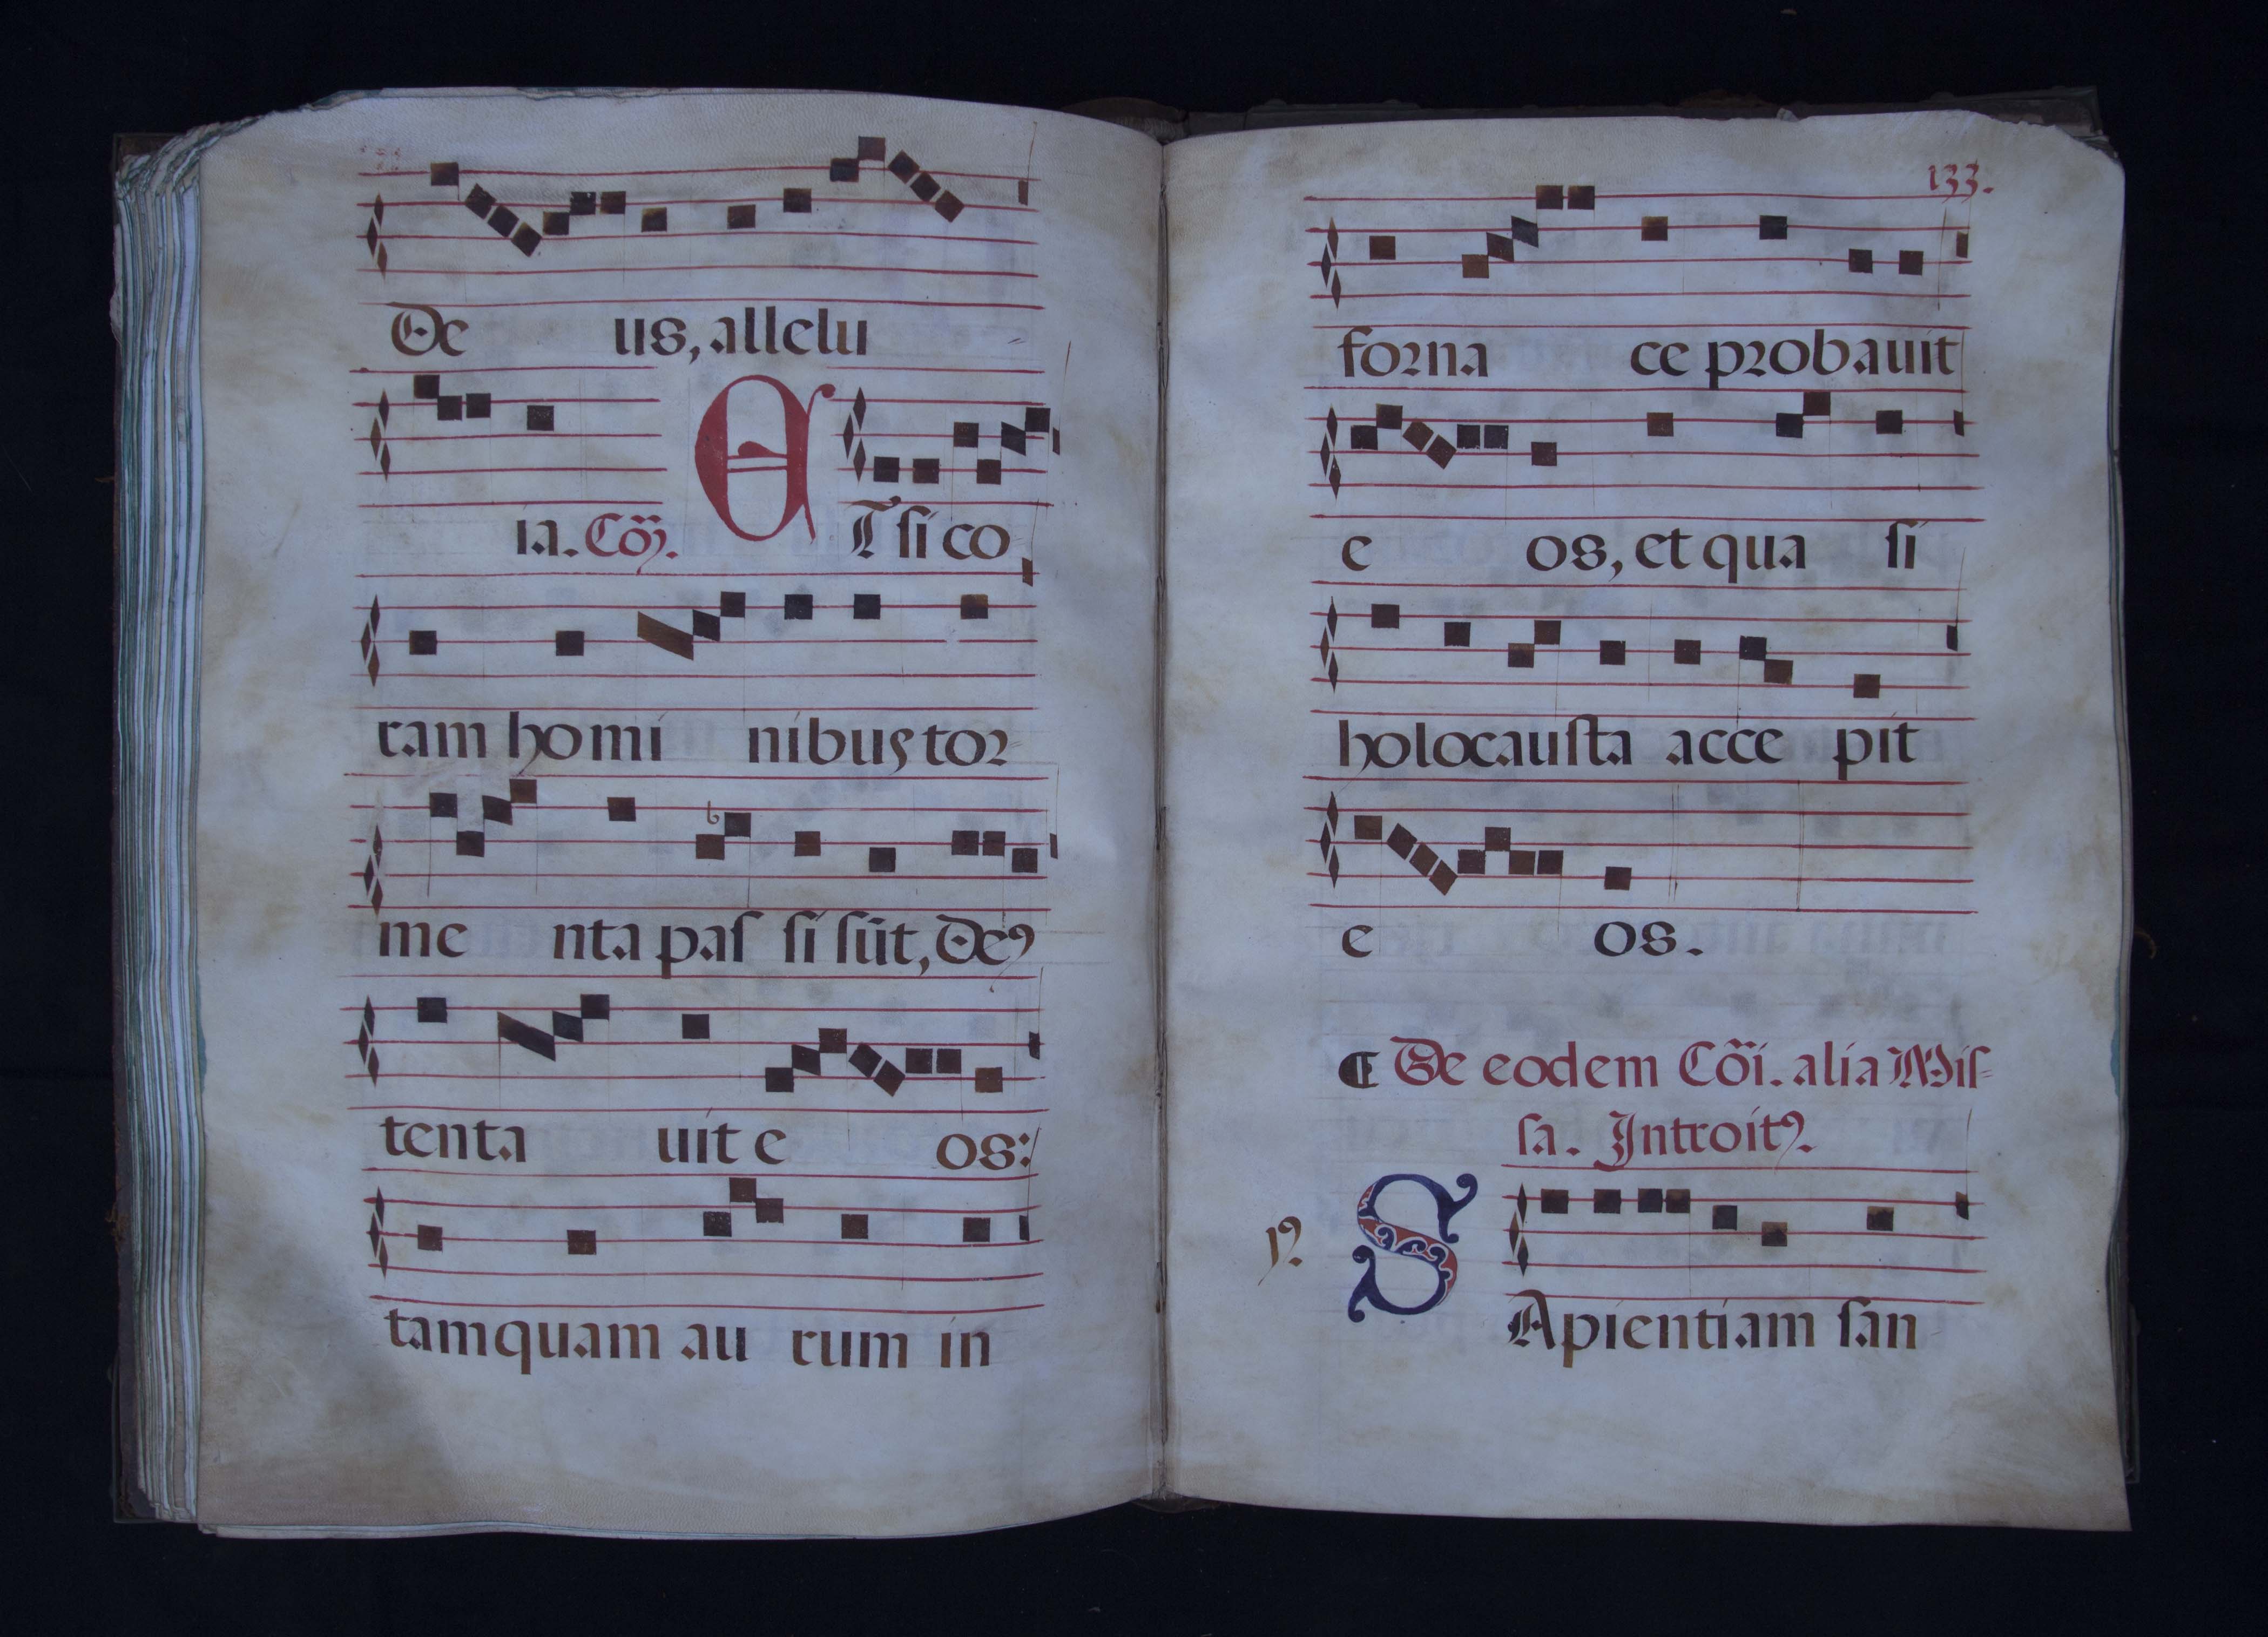 De us, allelu
ia. Cõ̃. ET ſi co
ram homi nibus tor
me nta paſ ſi ſũt, Deꝰ
tenta uit e os:
tamquam au rum in
133.
forna ce probauit
e os, et qua ſi
holocauſta acce pit
e os.
¶ De eodem Cõi. alia Miſ-
ſa. Introitꝰ.
SApientiam ſan